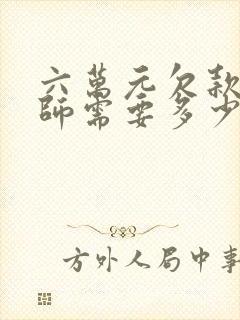 六萬元欠款
師需要多少
方外人局中事